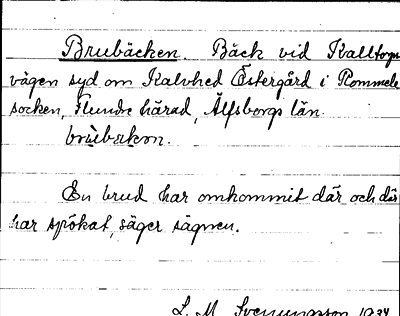 Brubäcken. Bäck vid Kalltorps
vägen syd om Kalvhed Östergård i Rommele
socken, Flundre härad, Älfsborgs län.
En brud har omkommit där och där
har spökat, säger sägnen.
L. M. Svenungsson 1934